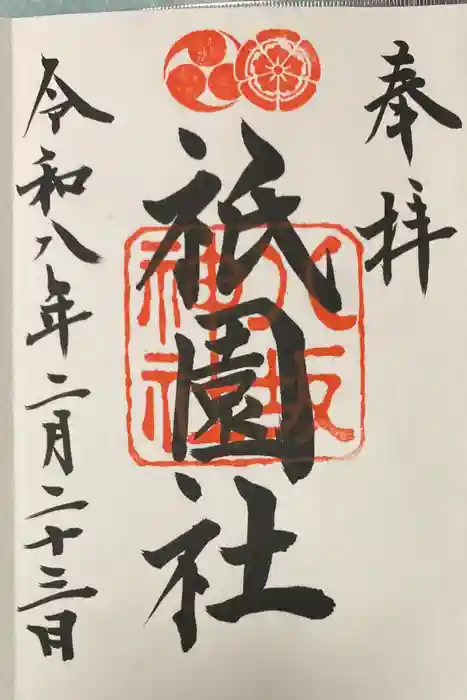 奉拝
祇園社
八坂神社
令和八年二月二十三日